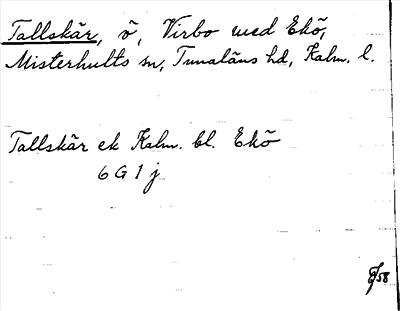 Tallskär, ö, Virbo med Ekö,
Misterhults sn, Tunaläns hd, Kalm. l.
Tallskär ek Kalm. bl. Ekö
6 G 1 j
/58